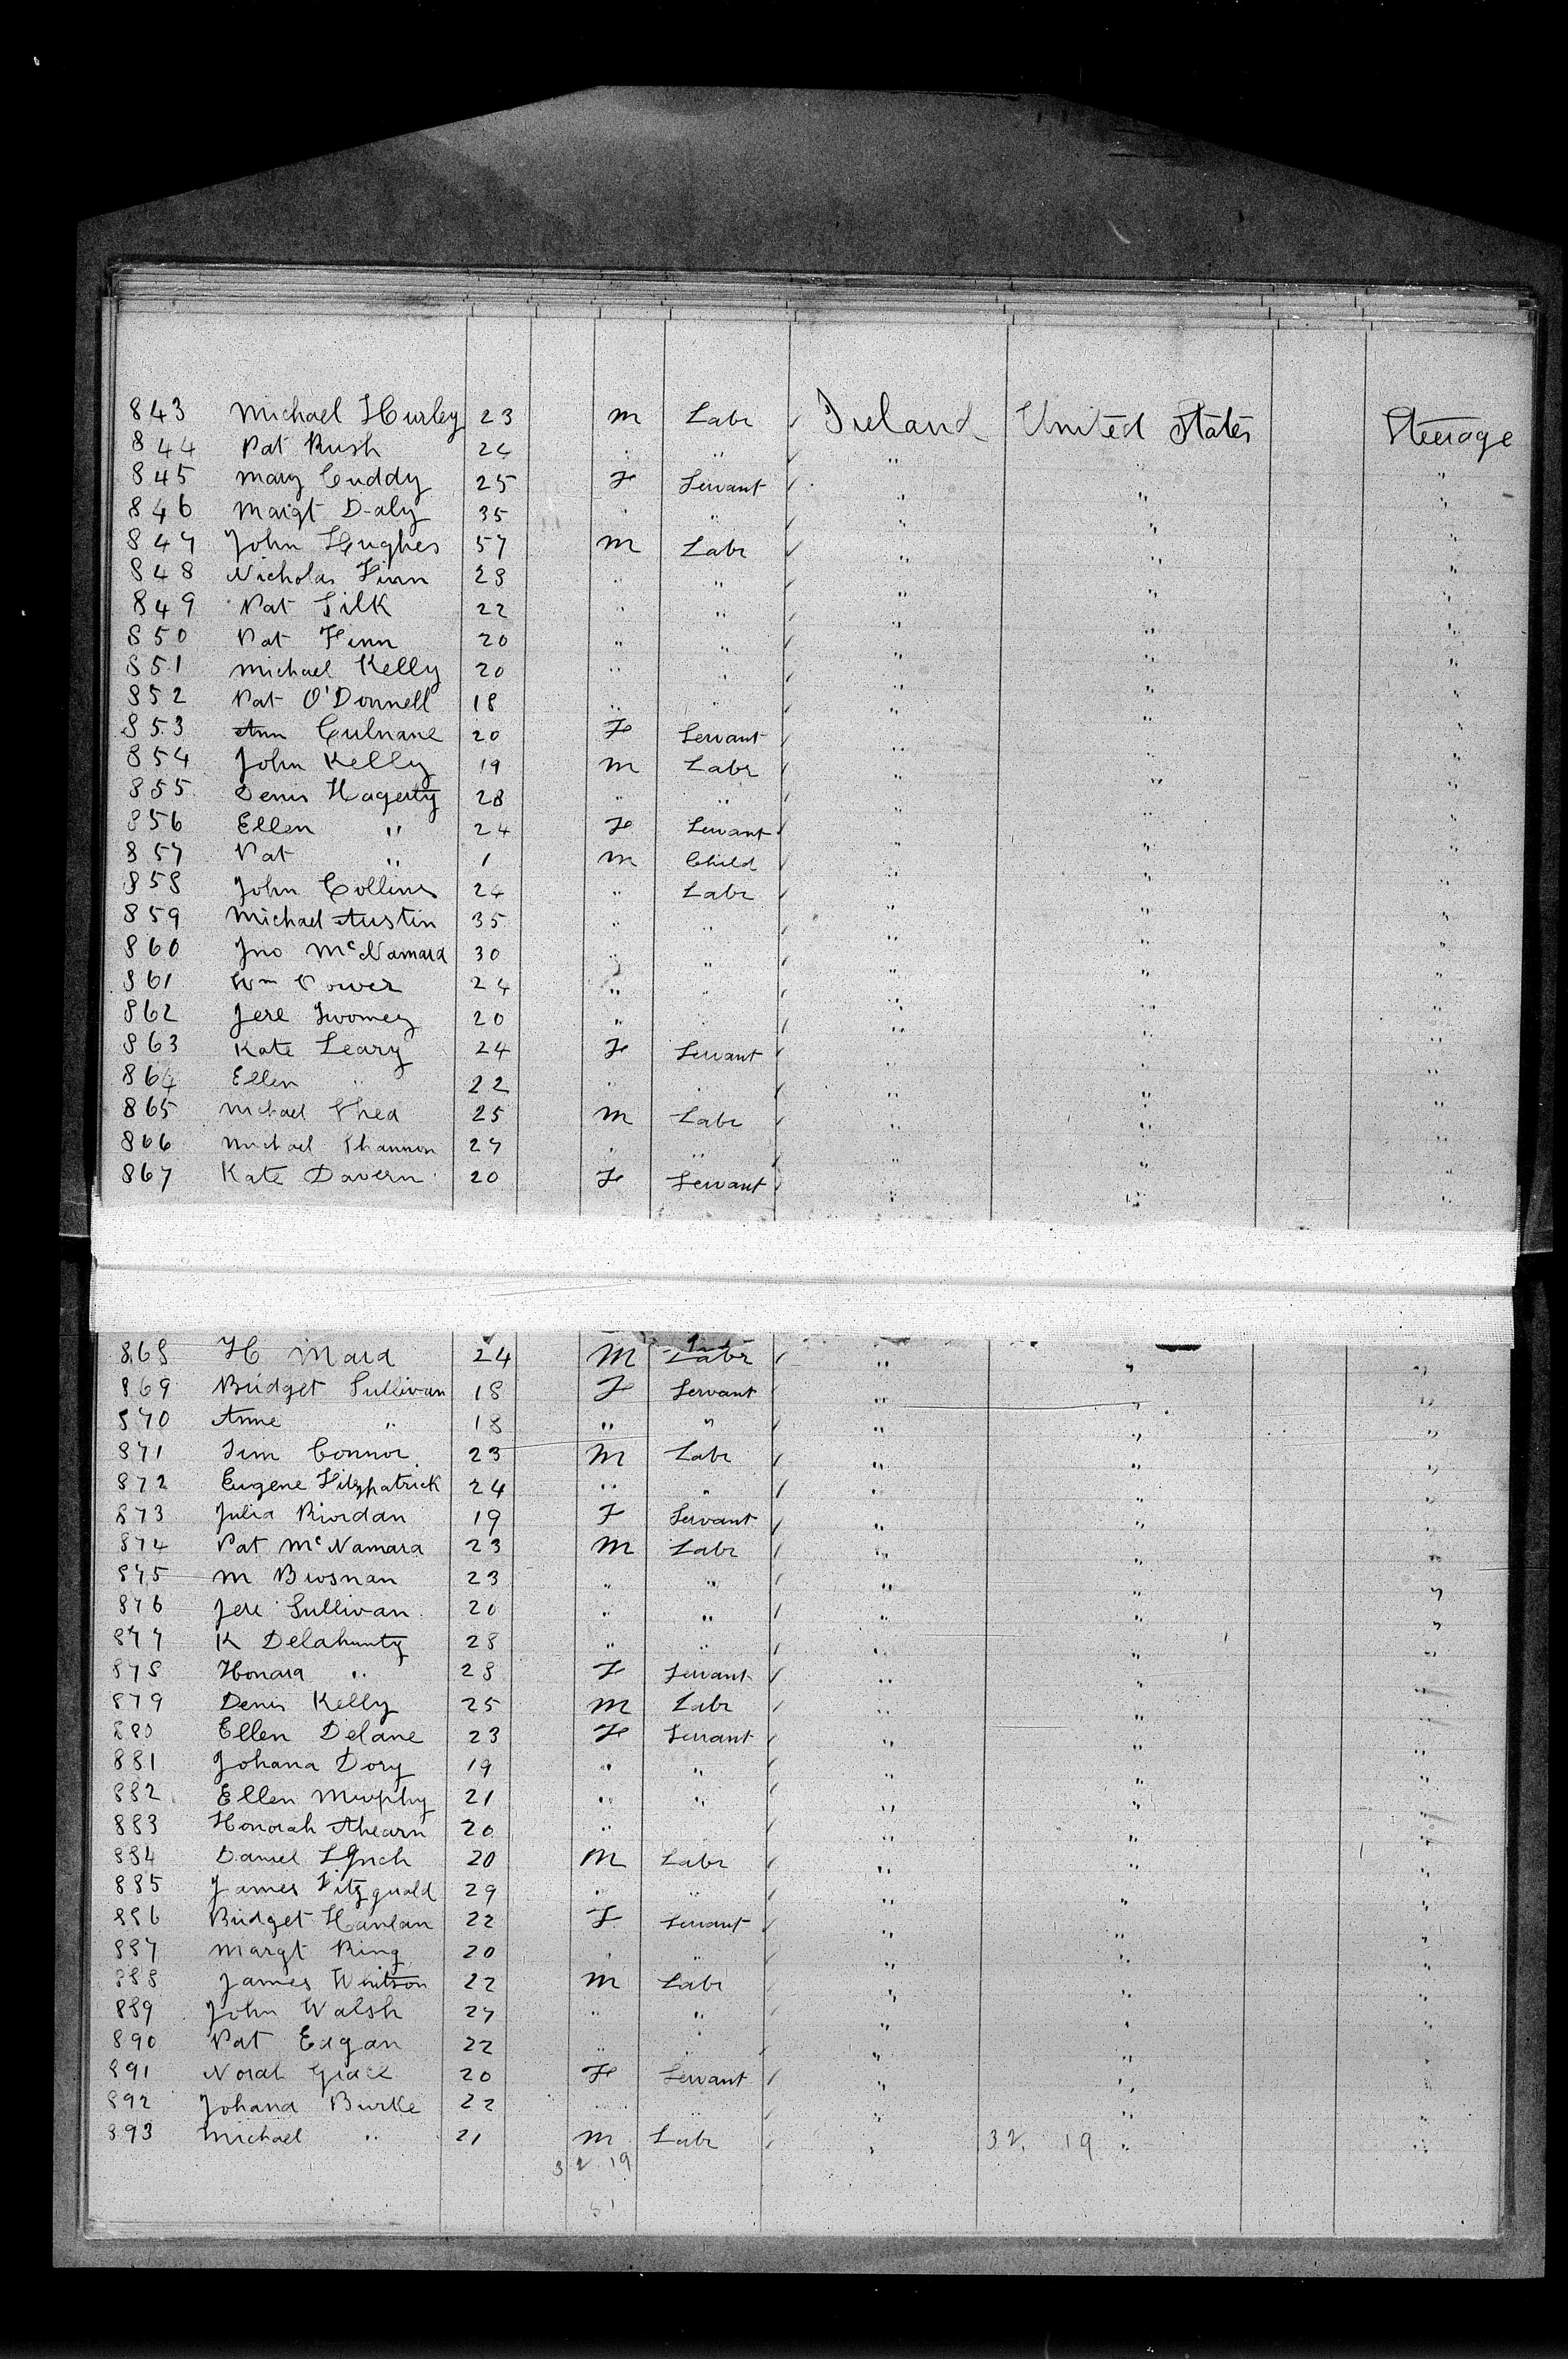 843 Michael Hurley 23 m Labr Ireland United States Steerage
844 Pat Rush 24 " " " " "
845 Mary Cuddy 25 F Servant " " "
846 Margt Daly 35 " " " " "
847 John Hughes 57 m Labr " " "
848 Nicholas Finn 28 " " " " "
849 Pat Silk 22 " " " " "
850 Pat Finn 20 " " " " "
851 Michael Kelly 20 " " " " "
852 Pat O'Donnell 18 " " " " "
853 Ann Culnane 20 F Servant " " "
854 John Kelly 19 m Labr " " "
855 Denis Hagerty 28 " " " " "
856 Ellen " 24 F Servant " " "
857 Pat " 1 m Child " " "
858 John Collins 24 " Labr " " "
859 Michael Austin 35 " " " " "
860 Jno McNamara 30 " " " " "
861 Wm Power 24 " " " " "
862 Jere Twomey 20 " " " " "
863 Kate Leary 24 F Servant " " "
864 Ellen " 22 " " " " "
865 Michael Shea 25 m Labr " " "
866 Michael Shannon 27 " " " " "
867 Kate Davern 20 F Servant " " "
868 H Mara 24 M Labr " " "
869 Bridget Sullivan 18 F Servant " " "
870 Anne " 18 " " " " "
871 Tim Connor 23 M Labr " " "
872 Eugene Fitzpatrick 24 " " " " "
873 Julia Riordan 19 F Servant " " "
874 Pat McNamara 23 M Labr " " "
875 M Brosnan 23 " " " " "
876 Jere Sullivan 20 " " " " "
877 K Delahunty 28 " " " " "
878 Honara " 28 F Servant " " "
879 Denis Kelly 25 M Labr " " "
880 Ellen Delane 23 F Servant " " "
881 Johana Dory 19 " " " " "
882 Ellen Murphy 21 " " " " "
883 Honorah Ahearn 20 " " " " "
884 Daniel Lynch 20 M Labr " " "
885 James Fitzgerald 29 " " " " "
886 Bridget Hanlan 22 F Servant " " "
887 Margt Ring 20 " " " " "
888 James Whitson 22 m Labr " " "
889 John Walsh 27 " " " " "
890 Pat Eagan 22 " " " " "
891 Norah Grace 20 F Servant " " "
892 Johana Burke 22 " " " " "
893 Michael " 21 m Labr " 32 19 " "
32 19
51